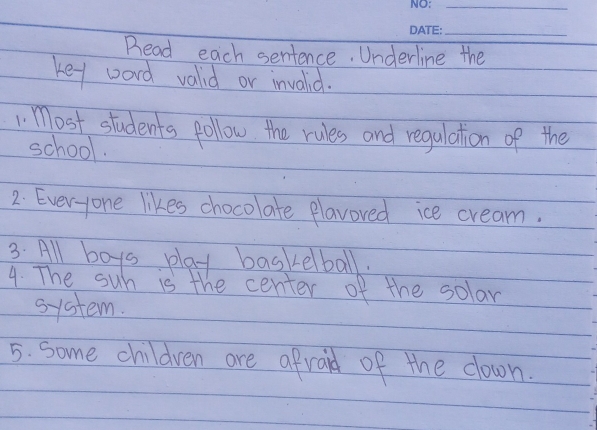 NO:
DATE:
Read each sentence. Underline the
key word valid or invalid.
1. Most students follow the rules and regulation of the
school.
2. Everyone likes chocolate flavored ice cream.
3. All boys play basketball.
4. The sun is the center of the solar
system.
5. Some children are afraid of the clown.